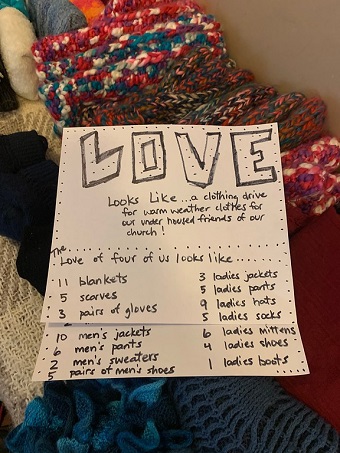 LOVE
Looks Like...a clothing drive
for warm weather clothes for
our under housed friends of our
church!
The
Love of four of us looks like.....
11 blankets
5 scarves
3 pairs of gloves
10 men's jackets
6 men's pants
2 men's sweaters
5 pairs of men's shoes
3 ladies jackets
5 ladies pants
9 ladies hats
5 ladies socks
6 ladies mittens
4 ladies shoes
1 ladies boots